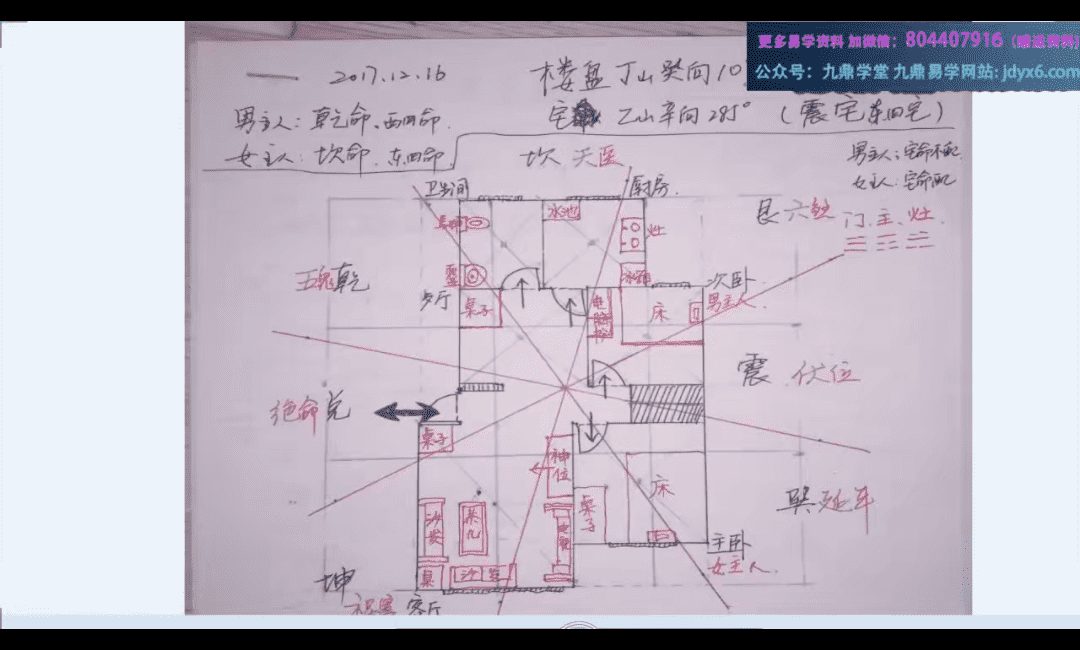 更多易学资料 加微信：804407916（赠送资料）
公众号：九鼎学堂 九鼎易学网站：jdyx6.com
2017.12.16
楼盘 丁山癸向 10
男主人：乾命、西四命.
宅 乙山辛向 285° （震宅东四宅）
女主人：坎命.东四命.
坎 天医
男主人：宅命不配
女主人：宅命配
卫生间
厨房.
艮 六煞
门.主.灶
水池
灶
五鬼 乾
冰箱
次卧
男主人.
桌子
床
震 伏位
绝命 兑
桌子
神位
床
桌子
巽 延年
沙发
茶几
电视
主卧
女主人.
桌
沙发
坤
祸害 客厅